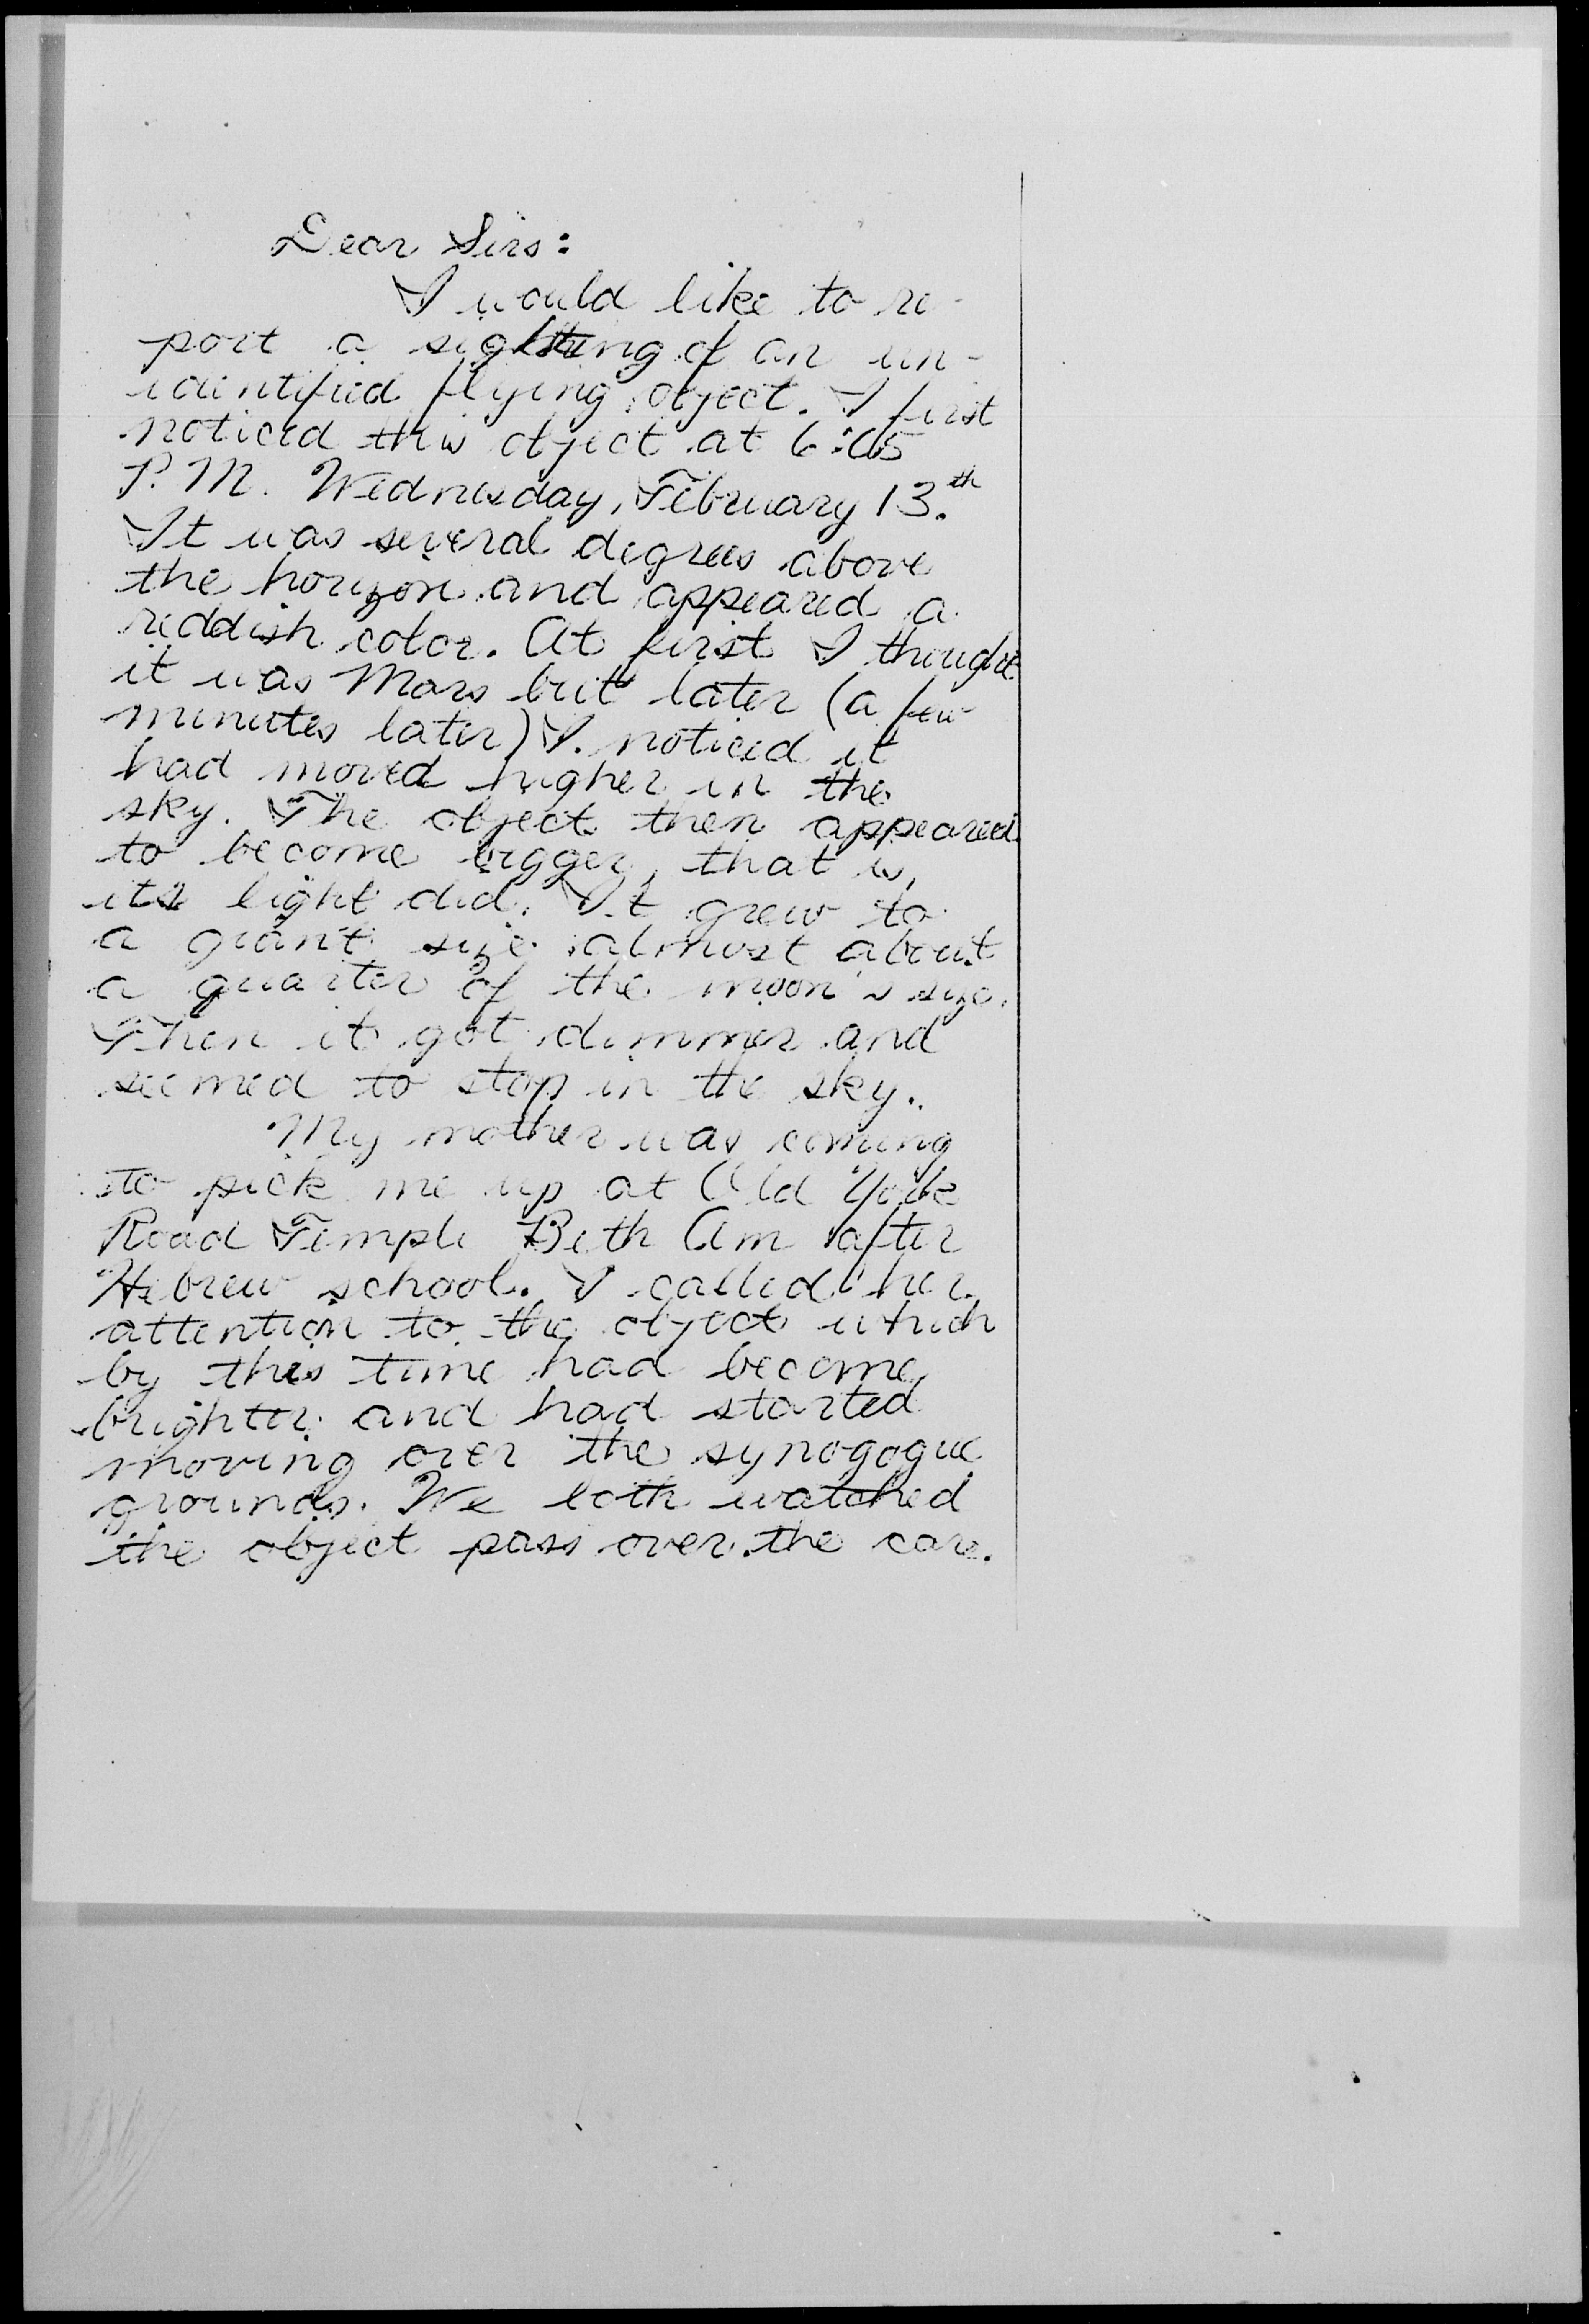 Dear Sirs:
I would like to re-
port a sighting of an un-
identified flying object. I first
noticed this object at 6:05
P.M. Wednesday, February 13.th
It was several degrees above
the horizon and appeared a
reddish color. At first I thought
it was Mars but later (a few
minutes later) I noticed it
had moved higher in the
sky. The object then appeared
to become bigger, that is,
its light did. It grew to
a giant size almost about
a quarter of the moon's size.
Then it got dimmer and
seemed to stop in the sky.
My mother was coming
to pick me up at Old York
Road Temple Beth Am after
Hebrew school. I called her
attention to the object which
by this time had become
brighter and had started
moving over the synogogue
grounds. We both watched
the object pass over the car.